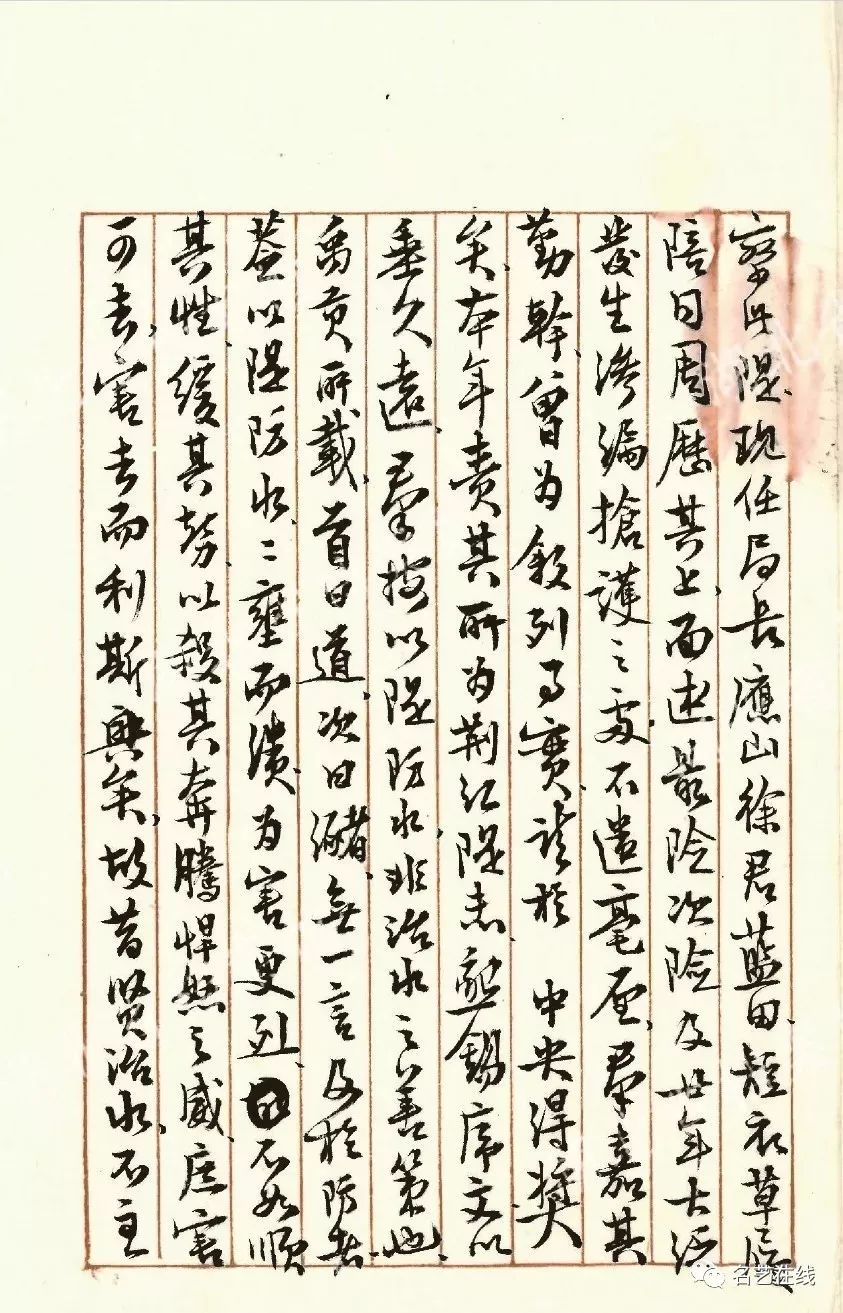 察此隄現任局長應山徐君藍田短衣草履
陪同周歷其上面述最險次險及廿年大汛
發生滲漏搶護之處不遺毫厘羣嘉其
勤幹曾為敘列事實證於 中央得獎
矣本年責其所為荆江隄志懇錫序文以
垂久遠羣按以隄防水非治水之善策也
禹貢所載首曰道次曰瀦無一言及於防者
蓋以隄防水二壅而潰為害更烈不如順
其性緩其勢以殺其奔騰悍然之威庶害
可去害去而利斯興矣故昔賢治水不主
名艺在线